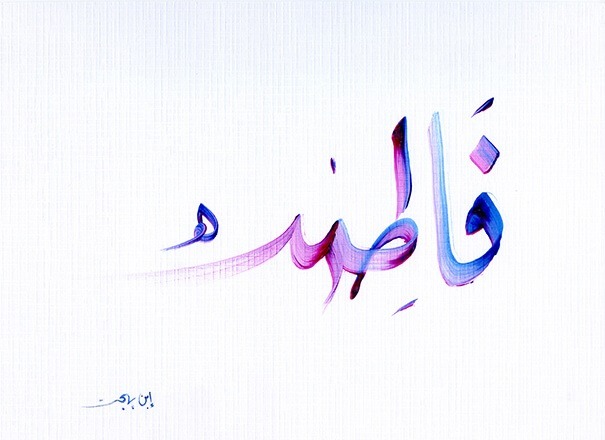 فَاطِمَه
إبن بهجت